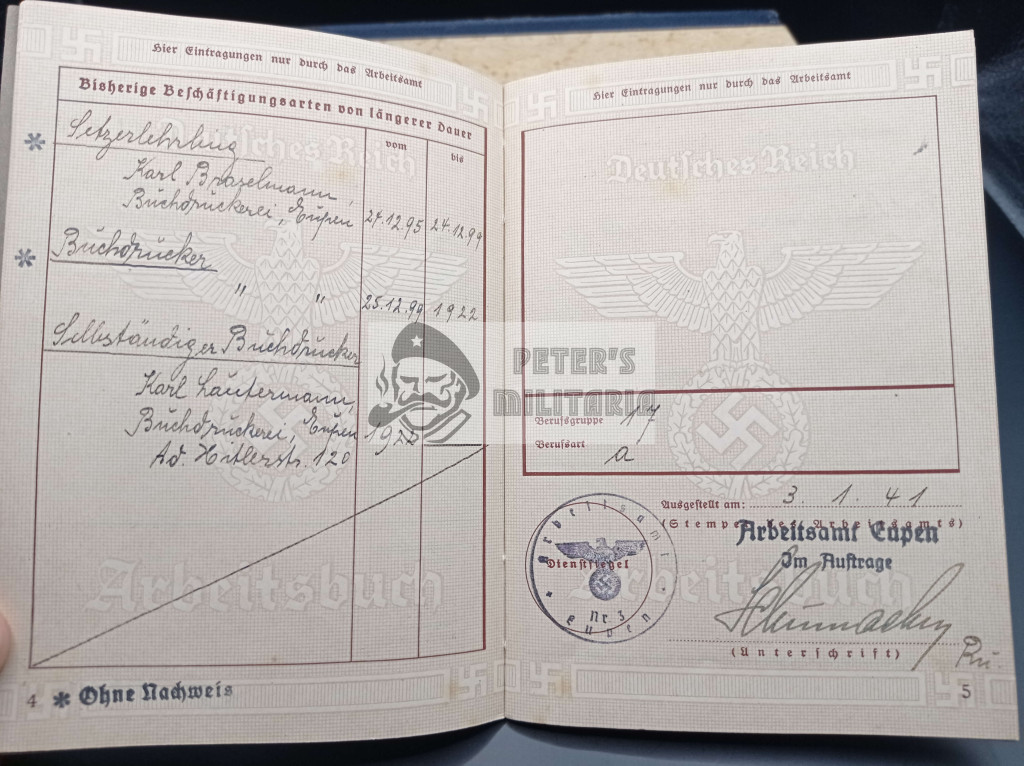 Hier Eintragungen nur durch das Arbeitsamt
Bisherige Beschäftigungsarten von längerer Dauer
vom
bis
* Setzerlehrling
Karl Braselmann,
Buchdruckerei, Eupen 27.12.95 24.12.99
* Buchdrucker
" " 25.12.99 1922
Selbständiger Buchdrucker
Karl Lautermann,
Buchdruckerei, Eupen 1922
Ad. Hitlerstr. 120
Deutsches Reich
Arbeitsbuch
4 * Ohne Nachweis
Hier Eintragungen nur durch das Arbeitsamt
Deutsches Reich
PETER'S
MILITARIA
Berufsgruppe 17
Berufsart a
Ausgestellt am: 3. 1. 41
(Stempel des Arbeitsamts)
Arbeitsamt Eupen
Im Auftrage
Arbeitsamt
Dienstsiegel
Nr 3
Eupen
Arbeitsbuch
(Unterschrift)
5